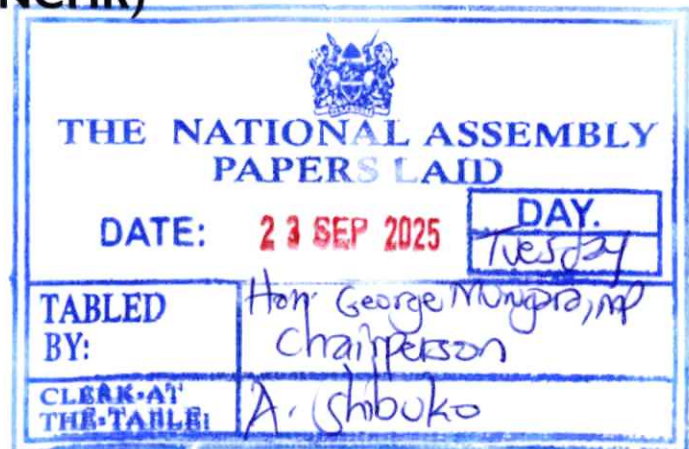 NCHR)
THE NATIONAL ASSEMBLY
PAPERS LAID
DATE: 23 SEP 2025
DAY.
Tuesday
TABLED BY:
Hon. George Murugara, MP
Chairperson
CLERK-AT THE-TABLE:
A. Shibuko